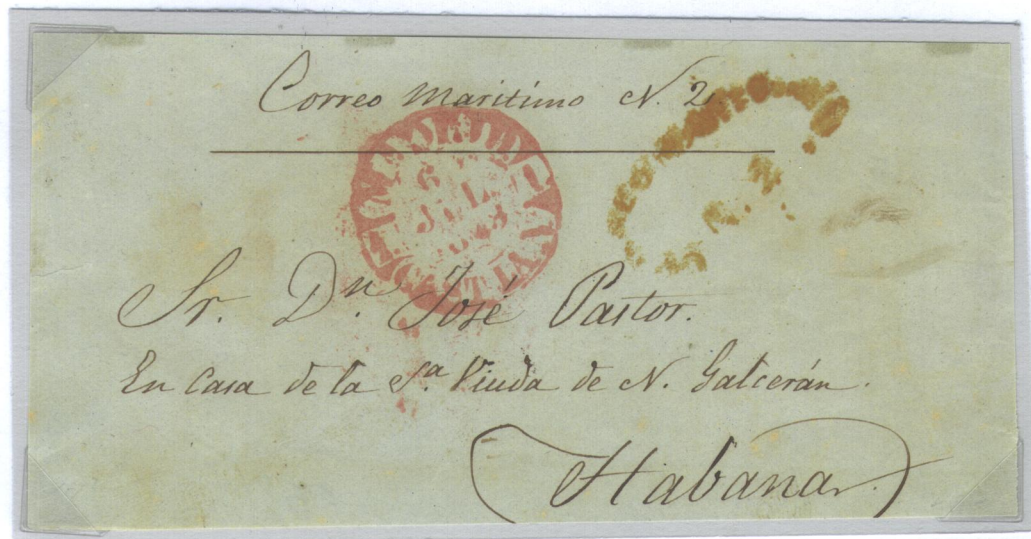 Correo Maritimo N. 2.
6
JUL
1843
Sr. Dn. José Pastor.
En Casa de la Sa. Viuda de N. Galcerán.
Habana.